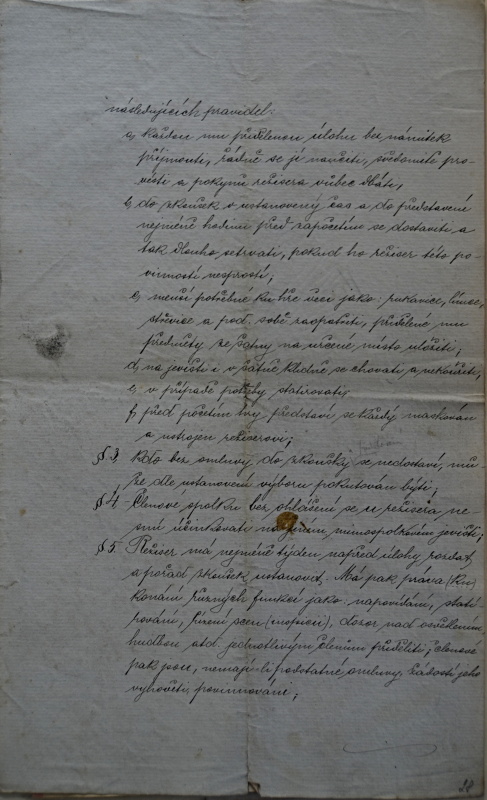 následujících pravidel:
a, každou mu přidělenou úlohu bez námitek
přijmouti, řádně se jí naučiti, svědomitě pro-
vésti a pokynů režisera vůbec dbáti,
b, do zkoušek v ustanovený čas a do představení
nejméně hodinu před započetím se dostaviti a
tak dlouho setrvati, pokud ho režiser této po-
vinnosti nesprostí;
c, menší potřebné ku hře věci jako: rukavice, límce,
střevíce a pod. sobě zaopatřiti, přidělené mu
předměty ze šatny na určené místo uložiti;
d, na jevišti i v šatně klidně se chovati a nekouřiti;
e, v případě potřeby statovati,
f, před početím hry představí se každý maskován
a ustrojen režiserovi;
§ 3, Kdo bez omluvy do zkoušky se nedostaví, mů-
že dle ustanovení výboru pokutován býti;
§ 4, Členové spolku bez ohlášení se u režisera ne-
smí účinkovati na jiném mimospolkovém jevišti;
§ 5. Režiser má nejméně týden napřed úlohy rozdat
a pořad zkoušek ustanovit. Má pak práva (ku)
konání různých funkcí jako: napovídání, stato-
vání, řízení scen (inspici), dozor nad osvětlením
hudbou atd. jednotlivým členům přiděliti; členové
pak jsou, nemají-li podstatné omluvy, žádosti jeho
vyhověti povinnováni;
28